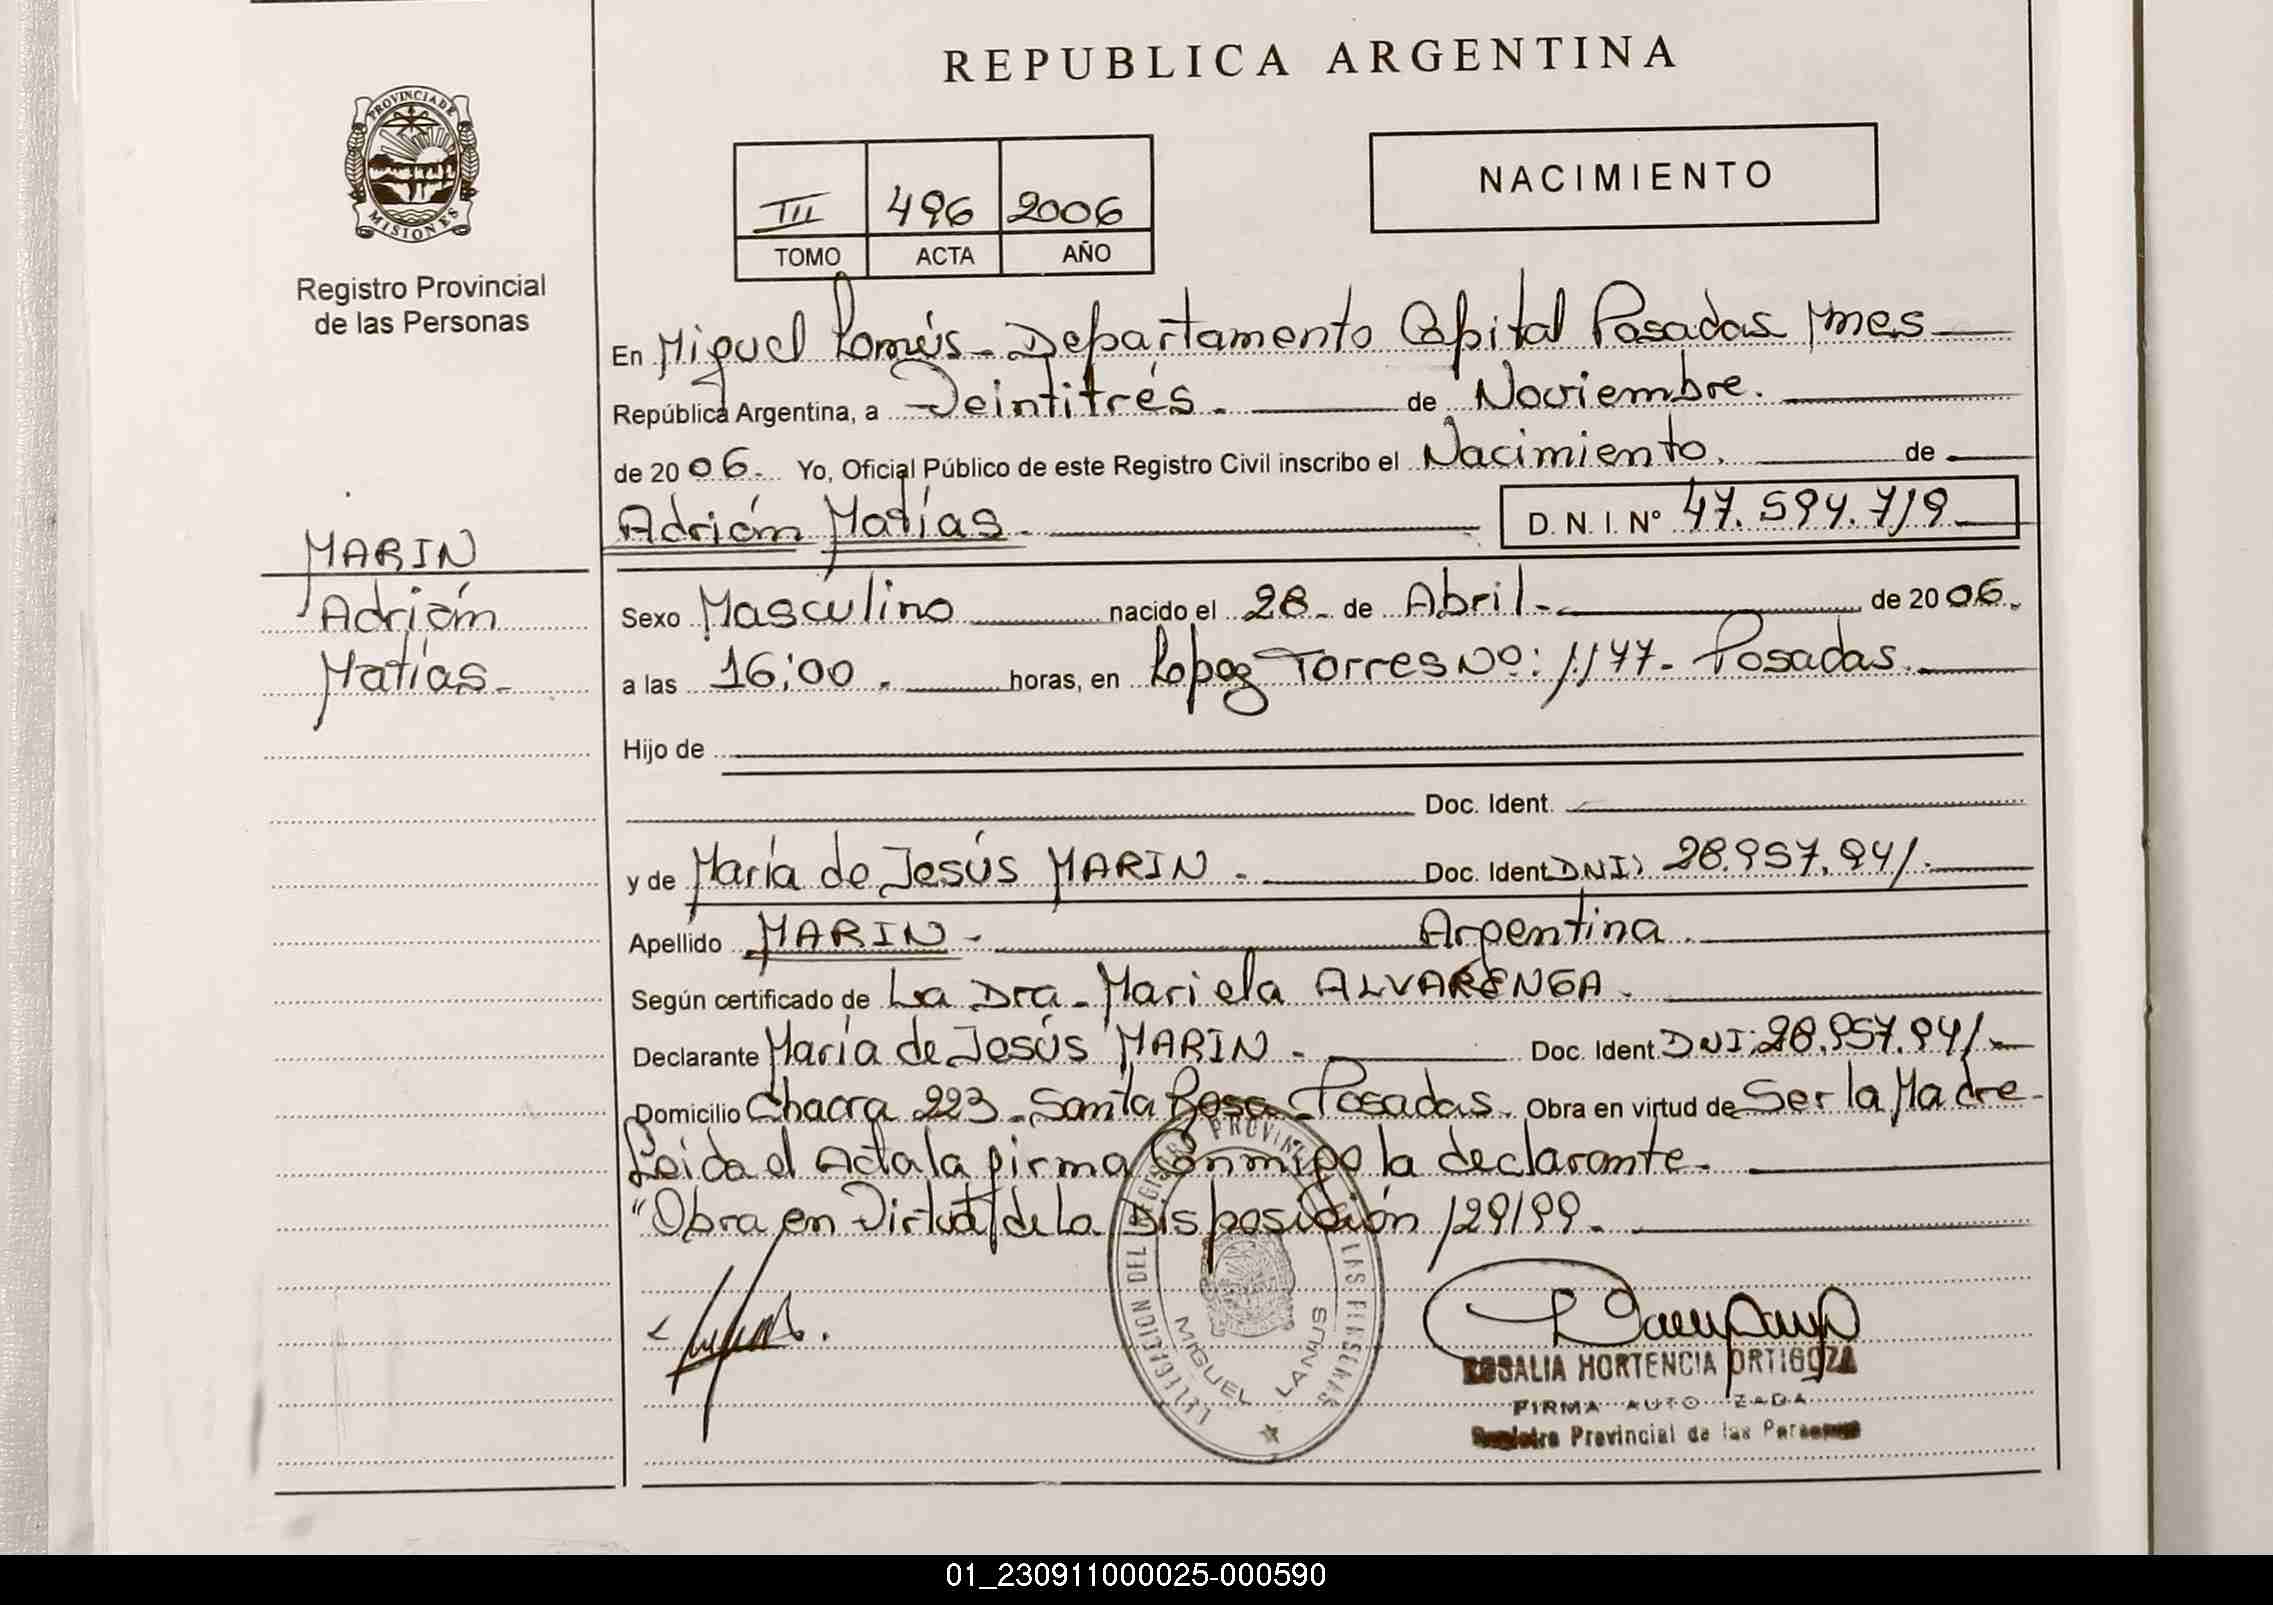 REPUBLICA ARGENTINA
PROVINCIA DE
MISIONES
Registro Provincial
de las Personas
III 496 2006
TOMO ACTA AÑO
NACIMIENTO
En Miguel Lanús - Departamento Capital Posadas Mnes
República Argentina, a Veintitrés. de Noviembre.
de 2006. Yo, Oficial Público de este Registro Civil inscribo el Nacimiento. de
Adrián Matías. D. N. I. Nº 47.594.719
MARIN
Adrián
Matías.
Sexo Masculino nacido el 28 - de Abril - de 2006.
a las 16:00 . horas, en Lopez Torres Nº: 1177 - Posadas.
Hijo de
Doc. Ident.
y de María de Jesús MARIN - Doc. Ident DNI: 28.957.941.
Apellido MARIN - Argentina.
Según certificado de La Dra. Mariela ALVARENGA.
Declarante María de Jesús MARIN - Doc. Ident. DNI: 28.957.941
Domicilio Chacra 223 - Santa Rosa - Posadas. Obra en virtud de Ser la Madre -
Leida el Acta la firma Conmigo la declarante.
"Obra en Virtud de la Disposición 129/99.
DELEGACION DEL REGISTRO PROVINCIAL DE LAS PERSONAS
MIGUEL LANUS
ROSALIA HORTENCIA ORTIGOZA
FIRMA AUTORIZADA
Registro Provincial de las Personas
01_230911000025-000590